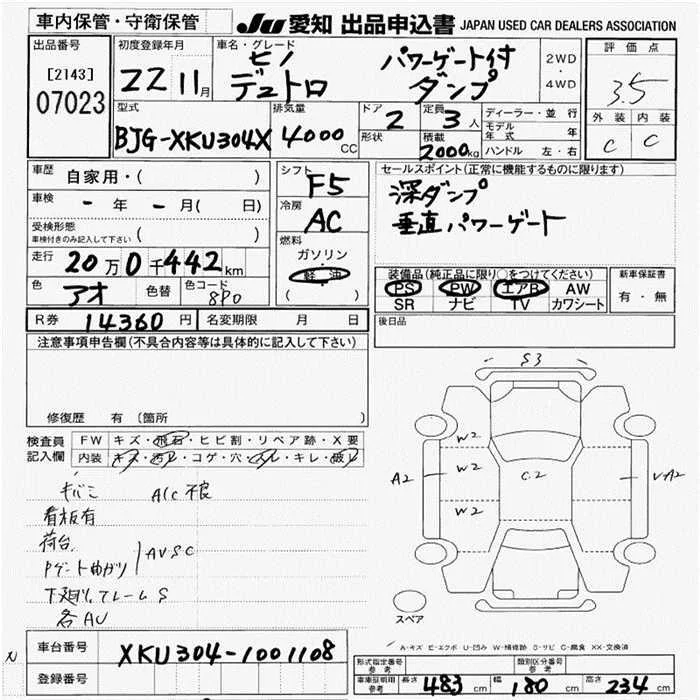 車内保管・守衛保管
JU 愛知 出品申込書 JAPAN USED CAR DEALERS ASSOCIATION
出品番号
[2143]
07023
初度登録年月
22 11月
車名・グレード
ヒノ
デュトロ
パワーゲート付
ダンプ
2WD
・
4WD
評価点
3.5
外装 内装
C C
型式
BJG-XKU304X
排気量
4000 CC
ドア
2
形状
定員
3人
積載
2000kg
ディーラー・並行
モデル年式 年
ハンドル 左・右
車歴 自家用・( )
車検 - 年 - 月( 日)
受検形態
車検付きのみ記入して下さい ( )
走行 20万0千442km
色 アオ 色替 色コード 8P0
シフト
F5
冷房
AC
燃料
ガソリン
軽油
( )
セールスポイント(正常に機能するものに限ります)
深ダンプ
垂直パワーゲート
装備品(純正品に限り○をつけてください)
PS PW エアB AW
SR ナビ TV カワシート
新車保証書
有・無
R券 14360円 名変期限 月 日
後日品
注意事項申告欄(不具合内容等は具体的に記入して下さい)
修復歴 有 (箇所 )
検査員
記入欄
FW キズ・飛石・ヒビ割・リペア跡・X要
内装 キズ・汚レ・コゲ・穴・スレ・キレ・破レ
キバミ A/C不良
看板有
荷台
Pゲート曲がり AVSC
下廻リフレームS
各AU
S3
W2
W2
W2
C2
A2
VA2
スペア
A-キズ E-エクボ U-凹み W-補修跡 S-サビ C-腐食 XX-交換済
N
車台番号 XKU304-1001108
登録番号
形式指定番号
参考
類別区分番号
参考
車庫証明用
参考
長さ 483cm 幅 180cm 高さ 234cm